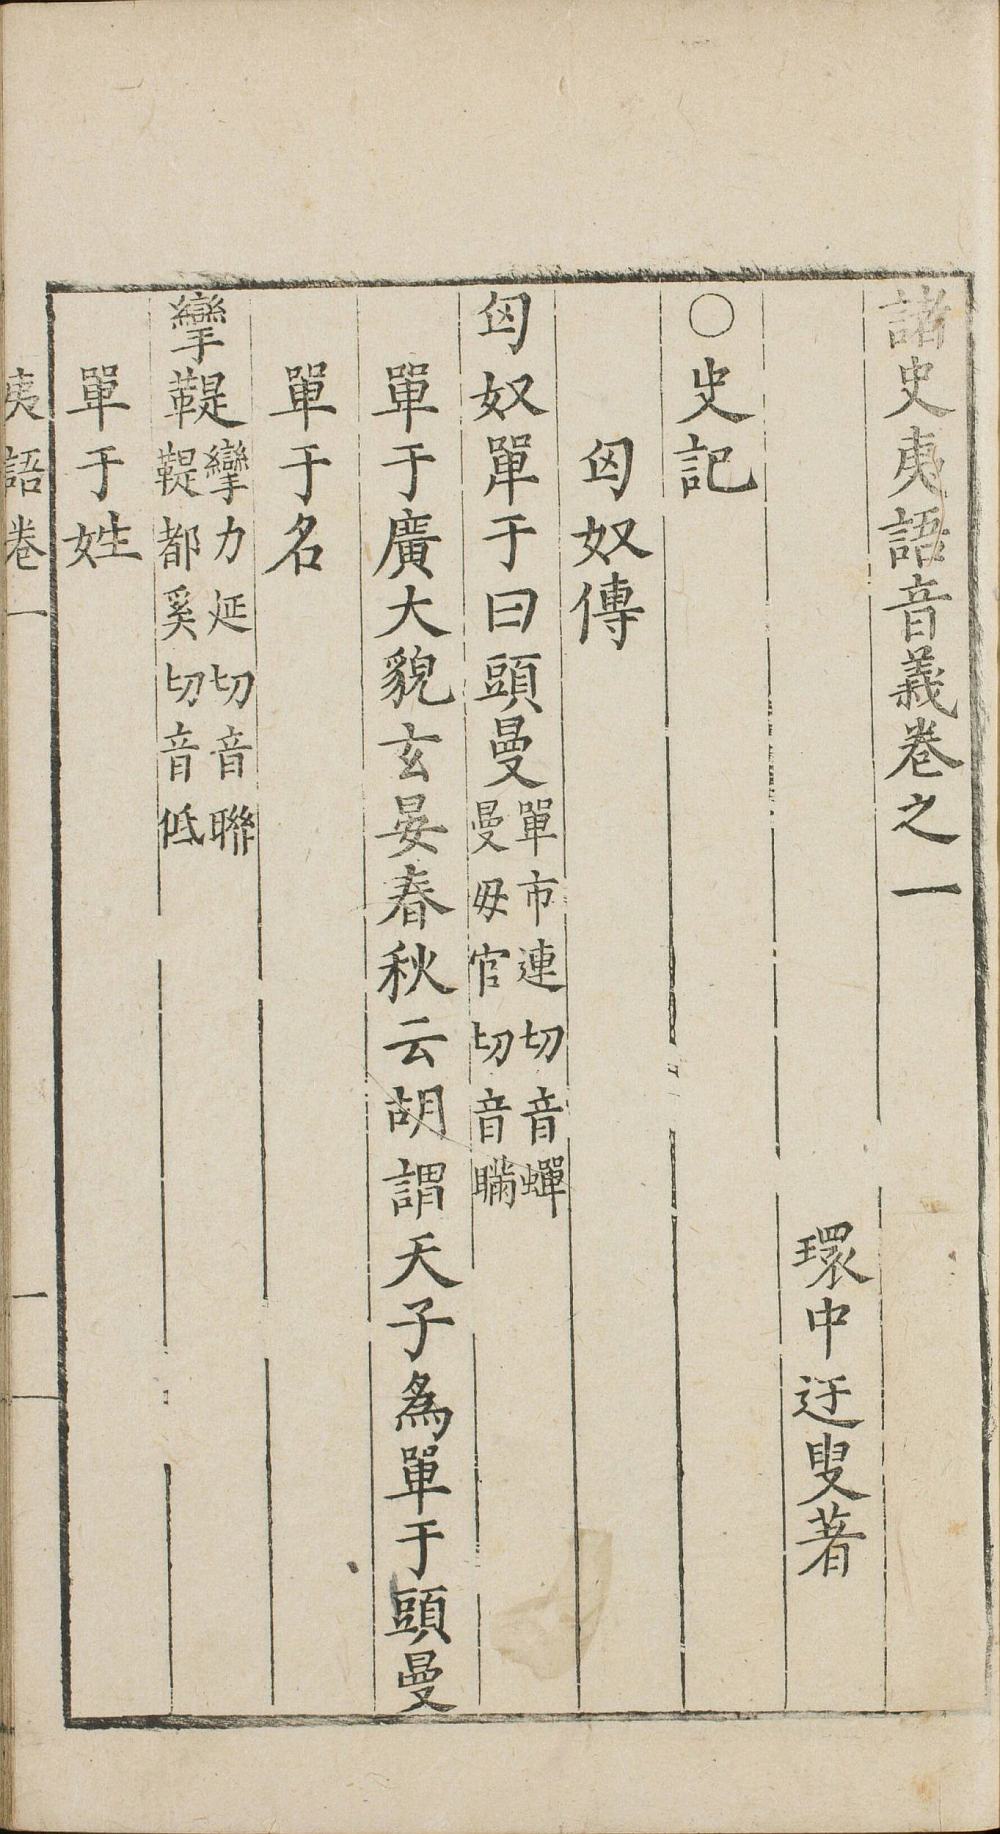 諸史夷語音義卷之一
環中迂叟著
○史記
匈奴傳
匈奴單于曰頭曼單市連切音蟬曼毋官切音瞞
單于廣大貌玄晏春秋云胡謂天子為單于頭曼
單于名
攣鞮攣力延切音聯鞮都奚切音低
單于姓
夷語卷一
一